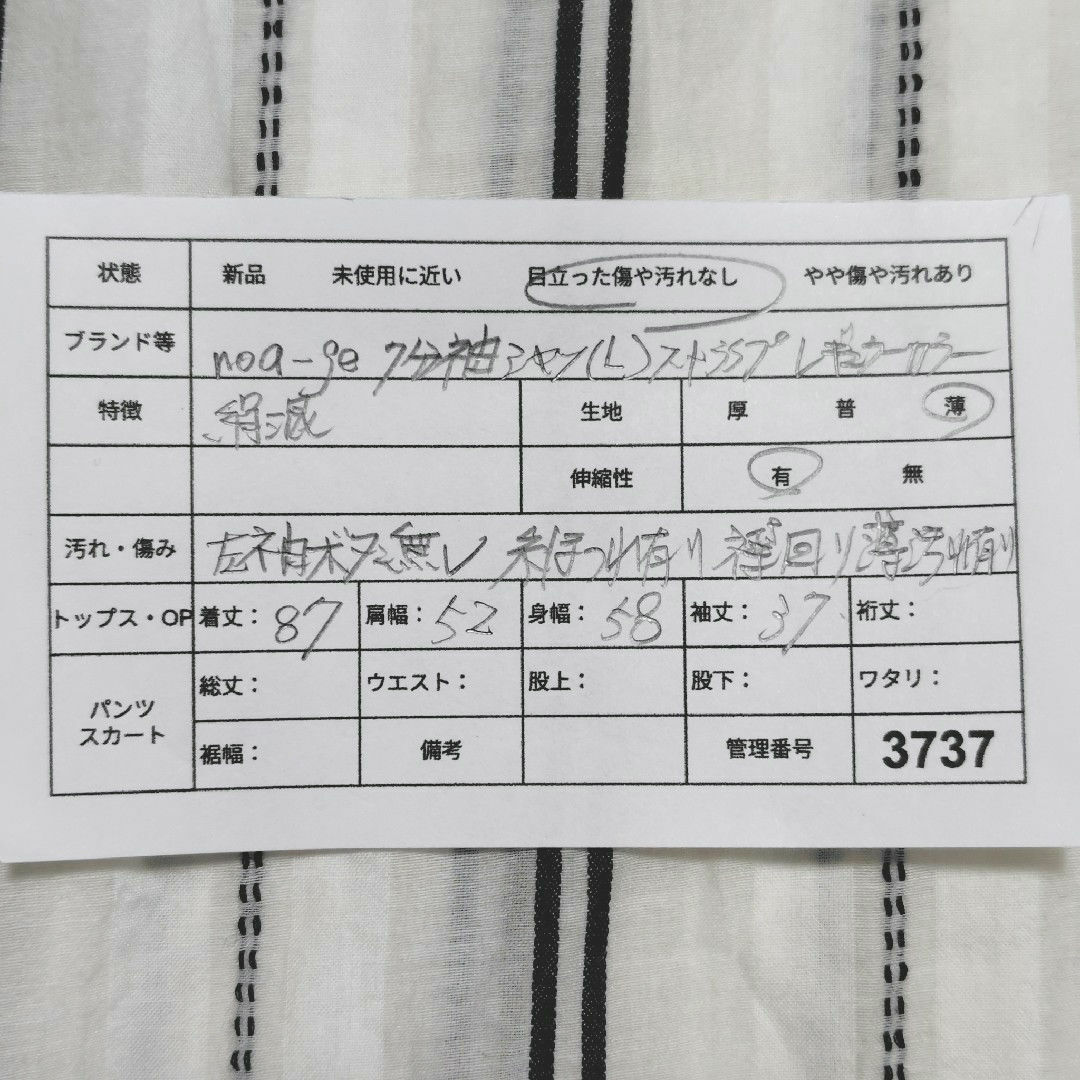 状態 新品 未使用に近い 目立った傷や汚れなし やや傷や汚れあり
ブランド等 noa-ge 7分袖シャツ(L)ストライプ レギュラーカラー
特徴 生地 厚 普 薄
伸縮性 有 無
汚れ・傷み 左袖ボタン無し 糸ほつれ有り 襟回り薄汚れ有り
トップス・OP 着丈: 87 肩幅: 52 身幅: 58 袖丈: 37 裄丈:
パンツ スカート 総丈: ウエスト: 股上: 股下: ワタリ:
裾幅: 備考 管理番号 3737